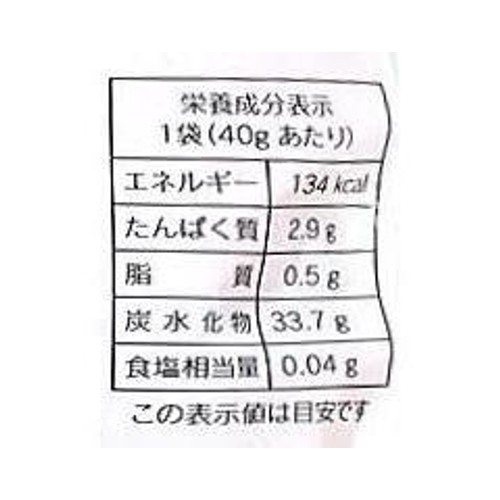 栄養成分表示
1袋(40gあたり)
エネルギー 134kcal
たんぱく質 2.9g
脂質 0.5g
炭水化物 33.7g
食塩相当量 0.04g
この表示値は目安です